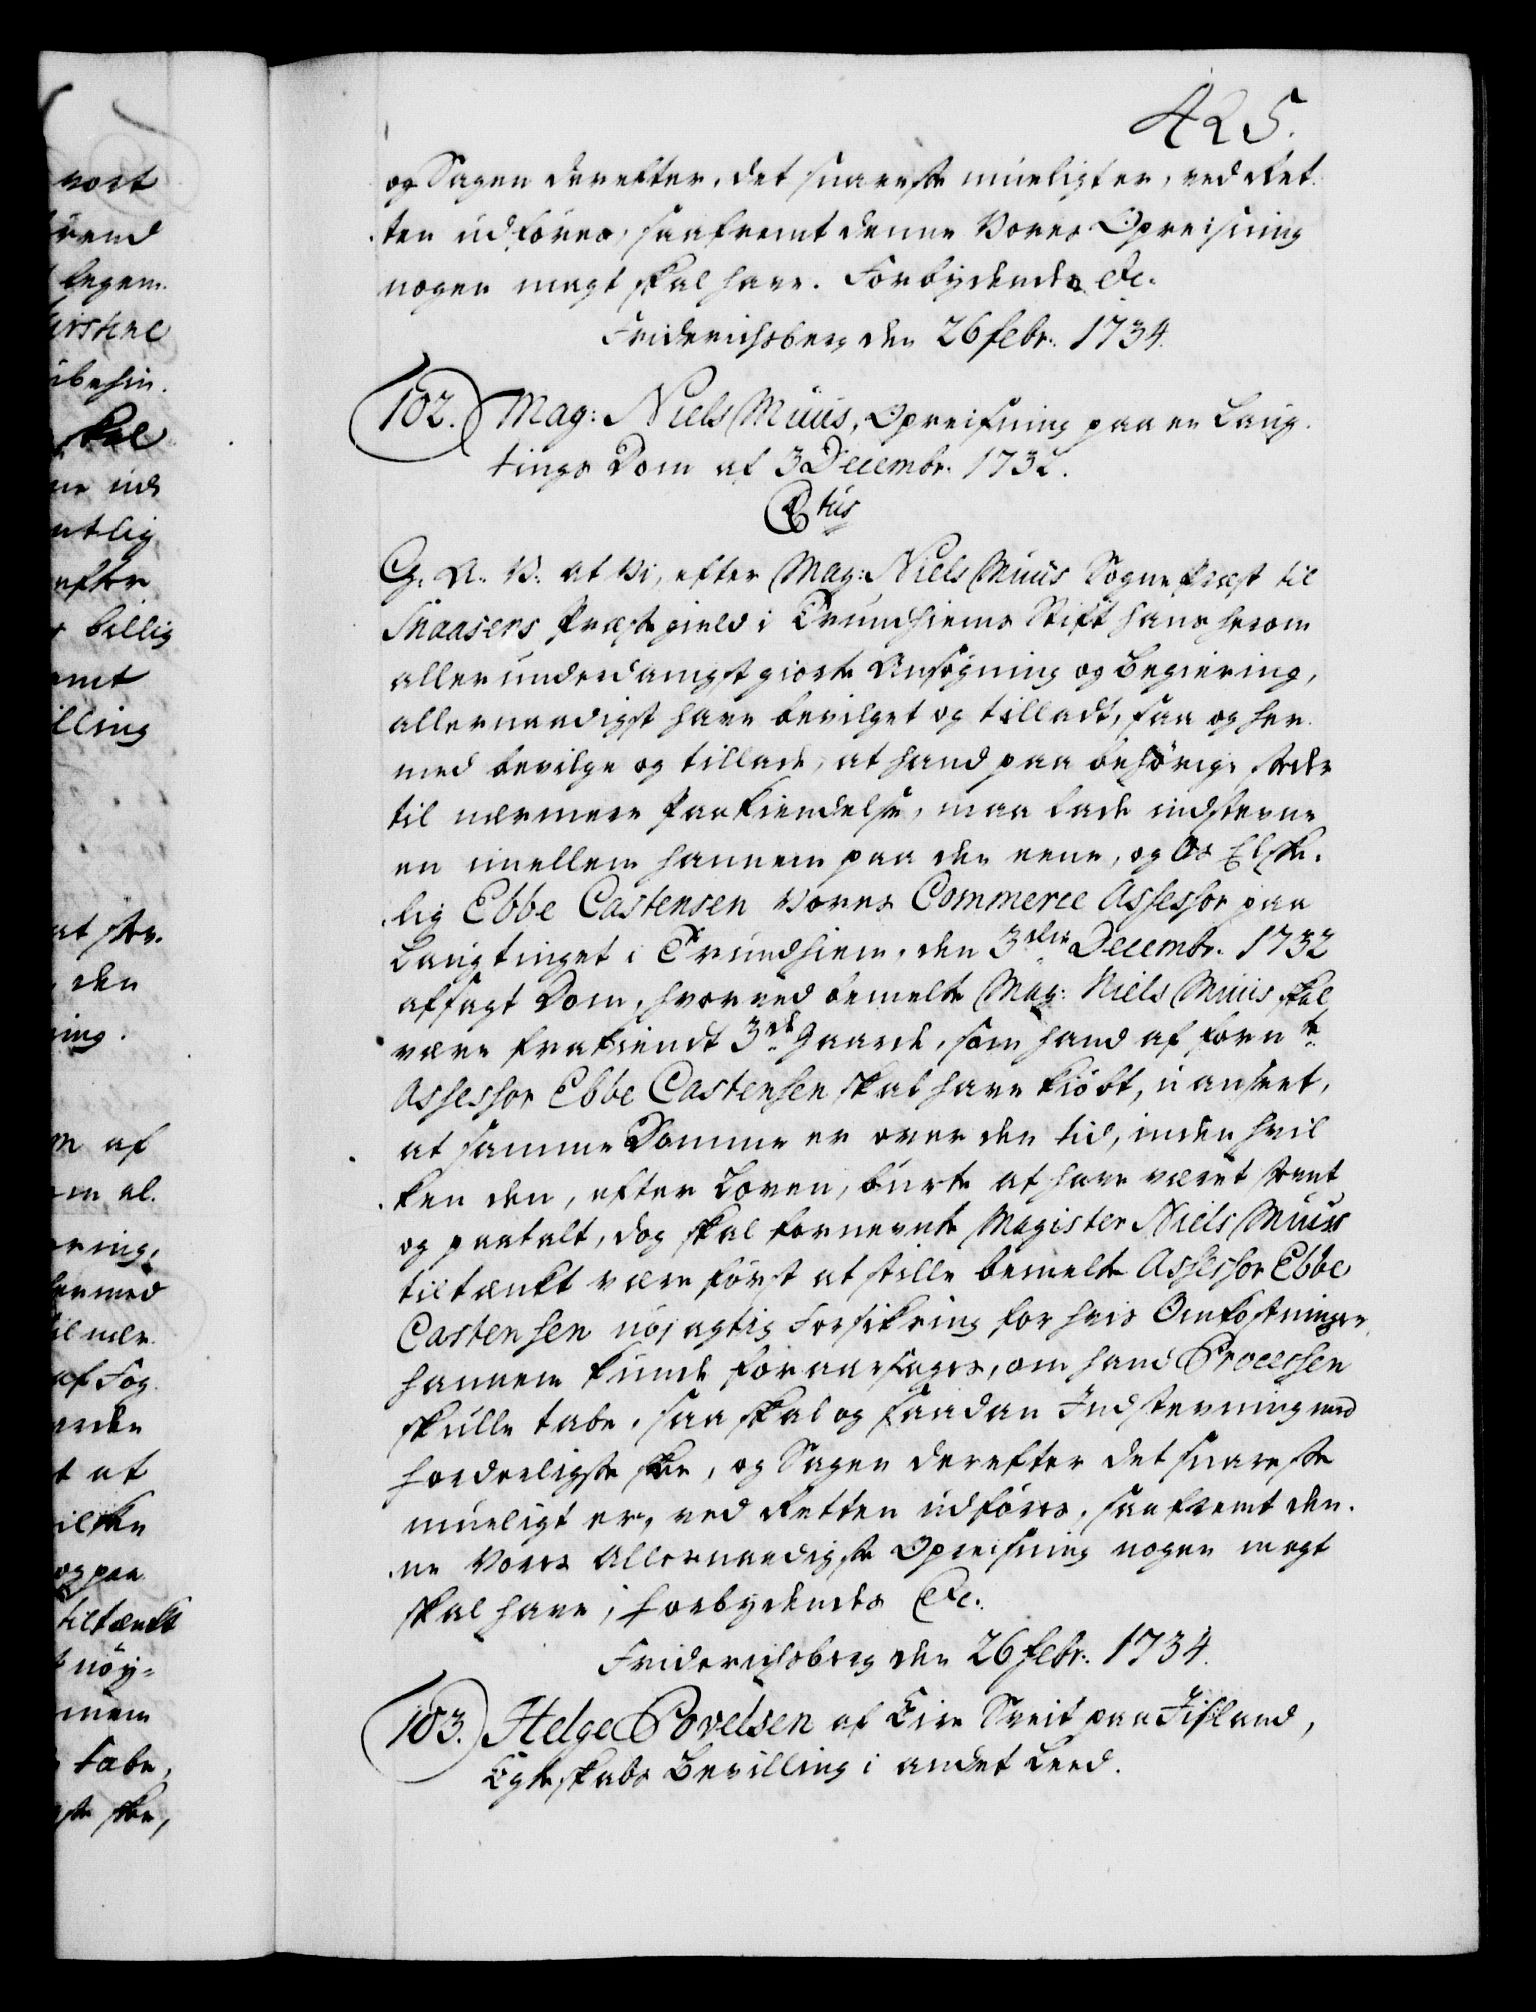 425.
og Sagen derefter, det snareste mueligt er, ved Ret-
ten udføres, saafremt denne Vores Opreisning
nogen magt skal have. Forbydendes &c.
Friderichsberg den 26 febr. 1734.
102. Mag: Niels Muus, Opreisning paa en Laug-
tings Dom af 3 Decembr. 1732.
C6tus
G. A. V. at Vi, efter Mag: Niels Muus Sogneprest til
Snaasens Præstegield i Trundhiems Stift hans herom
allerunderdanigst giorte Ansøgning og Begiering,
allernaadigst have bevilget og tilladt, saa og her-
med bevilge og tillade, at hand paa behørige steder
til nærmere Paakiendelse, maa lade indstevne
en imellem hannem paa den eene, og Os Elske-
lig Ebbe Castensen Vores Commerce Assessor paa
Laugtinget i Trundhiem, den 3die Decembr. 1732
afsagt Dom, hvorved bemelte Mag: Niels Muus skal
være frakiendt 3de Gaarde, som hand af forn te
Assessor Ebbe Castensen skal have kiøbt, uanseet,
at samme Domme er over den tid, inden hvil
ken den, efter Loven, burte at have været stevnt
og paatalt, dog skal fornevnte Magister Niels Muus
tiltænkt være først at stille bemelte Assessor Ebbe
Castensen nøjagtig Forsikring for hvis Omkostninger,
hannem kunde foraarsages, om hand Processen
skulle tabe, saa skal og saadan Indstevning med
forderligste skee, og Sagen derefter det snareste
mueligt er, ved Retten udføres, saafremt den-
ne Vores Allernaadigste Opreisning nogen magt
skal have; forbydendes &c.
Friderichsberg den 26 febr. 1734.
103. Helge Povelsen af Lire Sveit paa Jisland,
Egteskabs Bevilling i andet Leed.